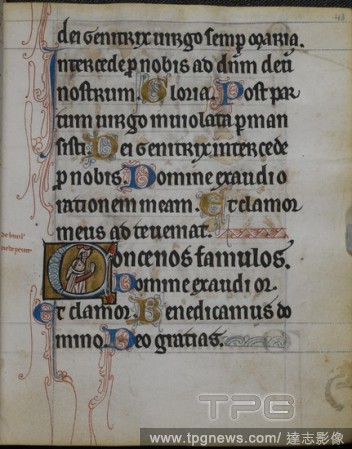 dei genitrix uirgo semp maria.
Intercede p nobis ad dnm deū
nostrum. Gloria. Post par
tum uirgo inuiolata pman
sisti. Dei genitrix intercede
p nobis. Domine exaudi o
rationem meam. Et clamor
meus ad te ueniat.
Concenos famulos.
Domine exaudi or.
Et clamor. Benedicamus do
mino. Deo gratias.
TPG
www.tpgnews.com/ 達志影像